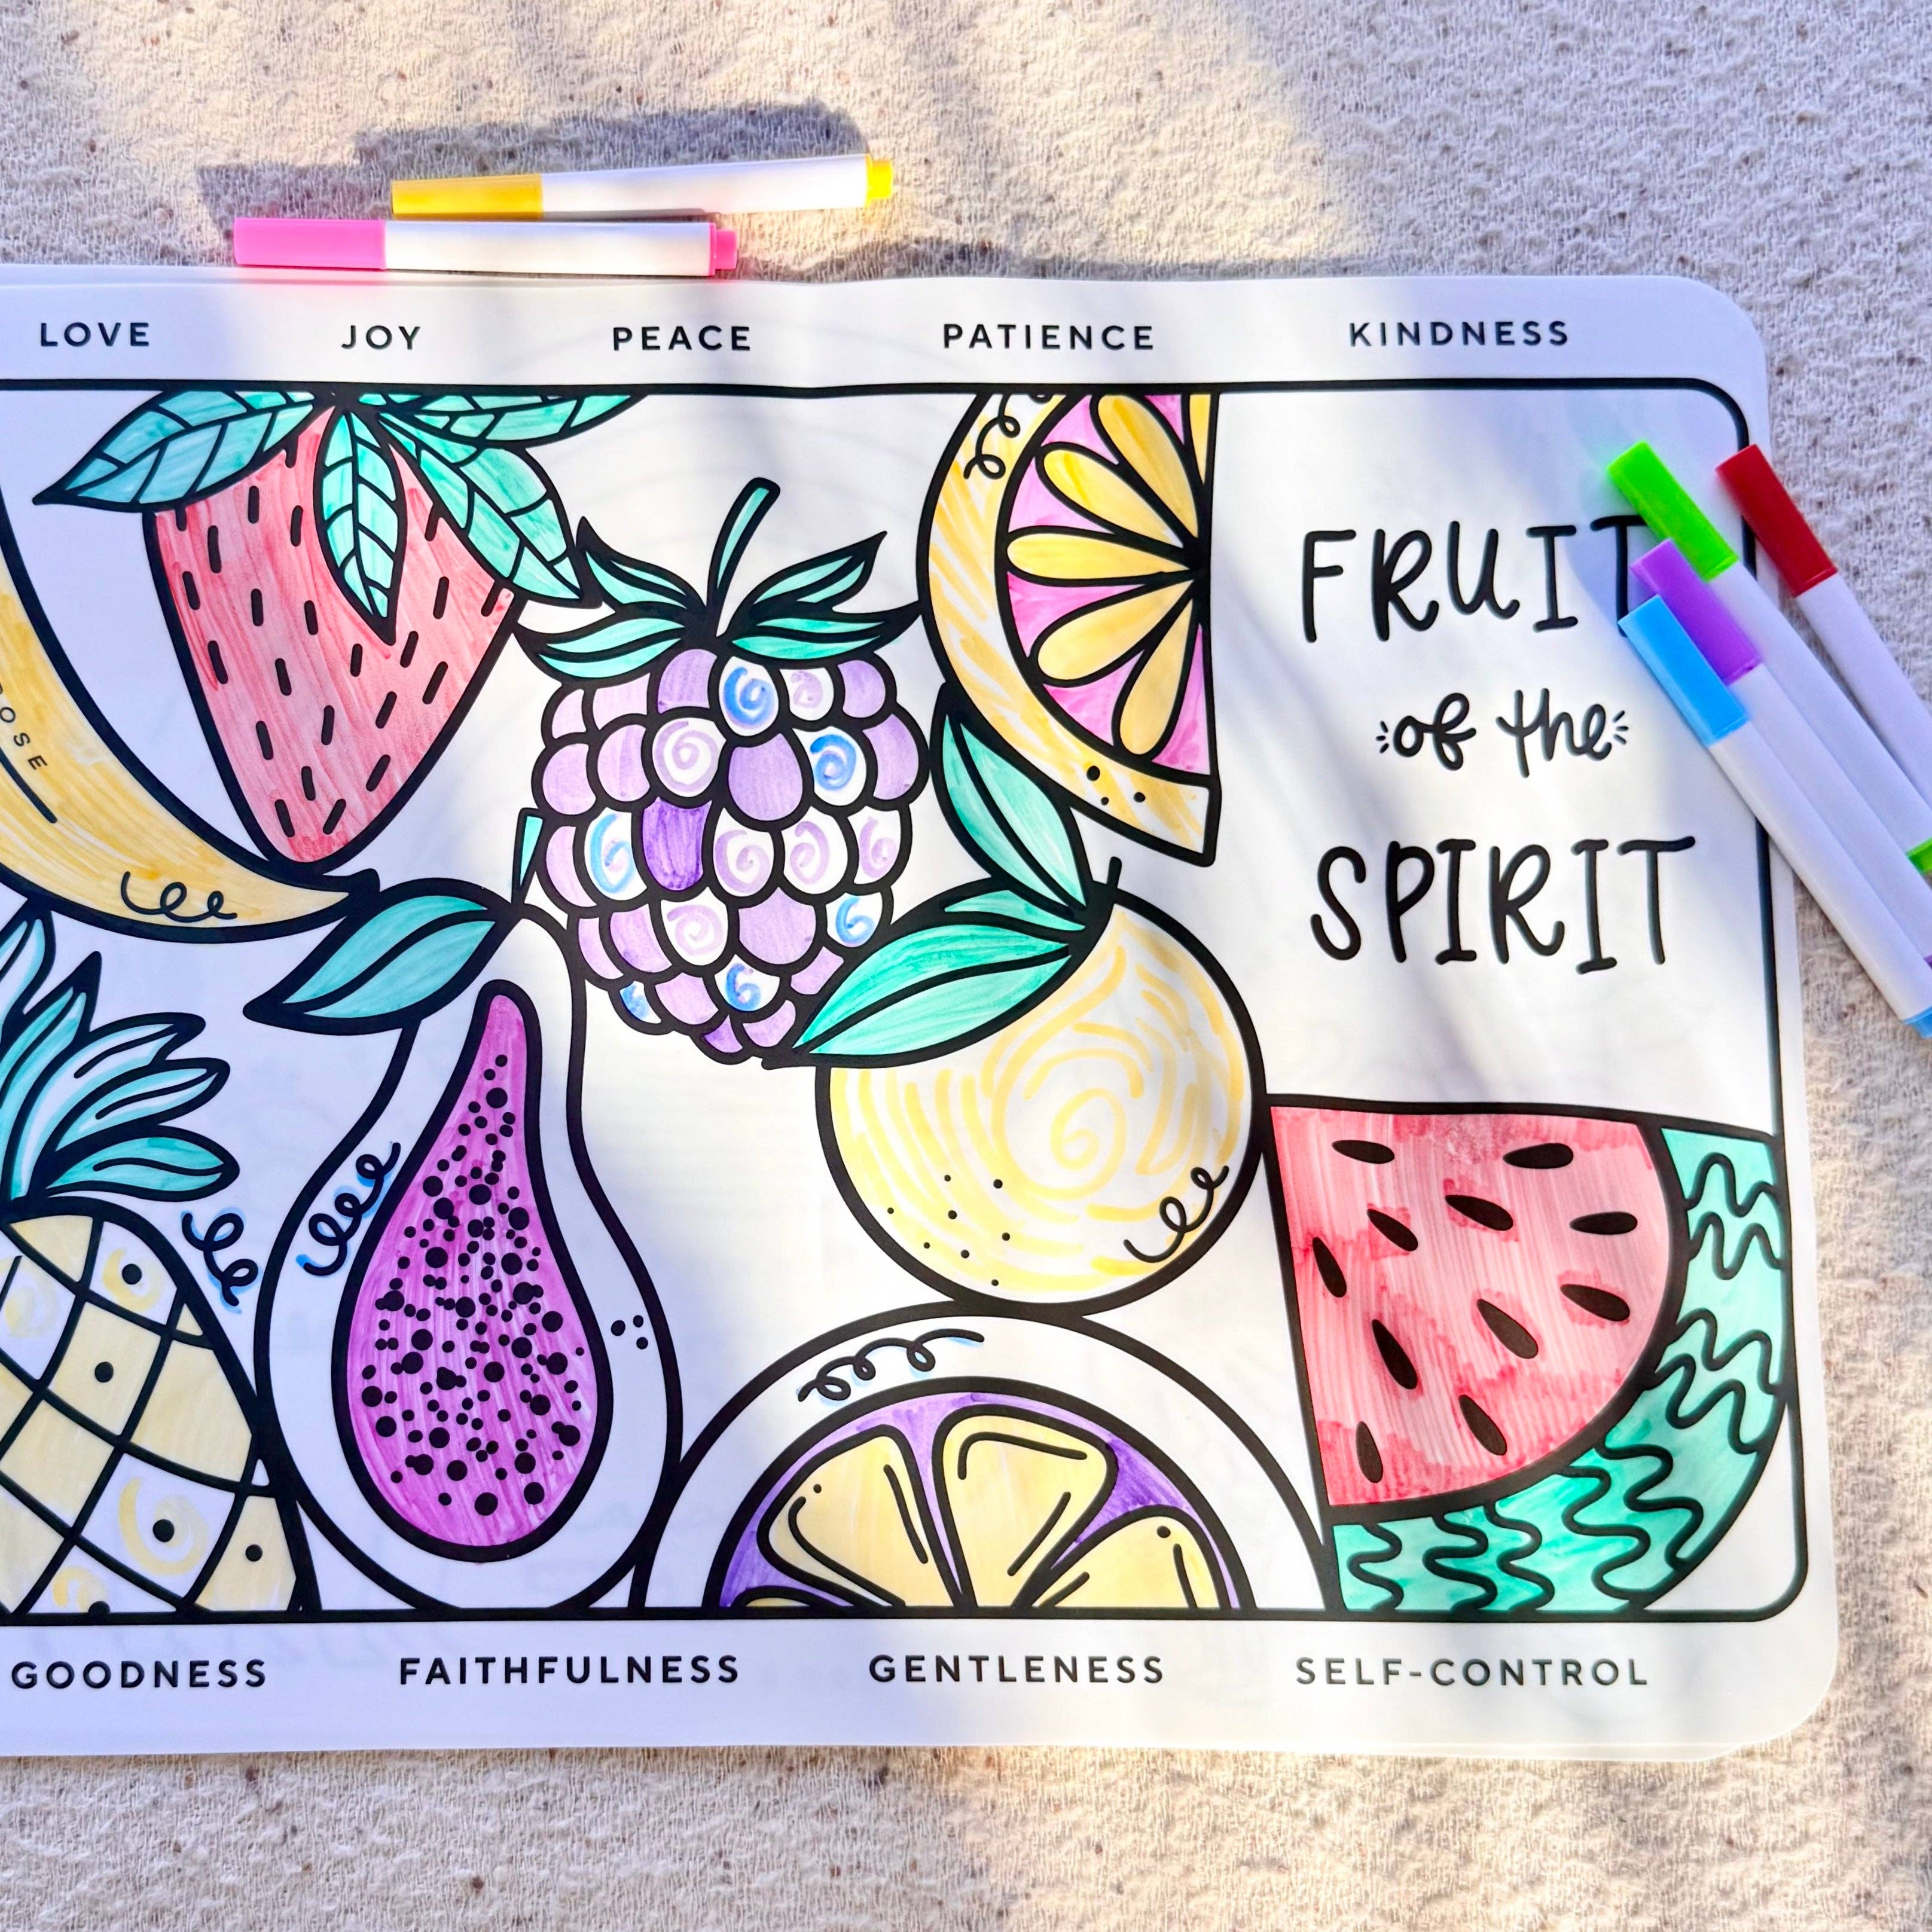 LOVE JOY PEACE PATIENCE KINDNESS
FRUIT
of the
SPIRIT
GOODNESS FAITHFULNESS GENTLENESS SELF-CONTROL